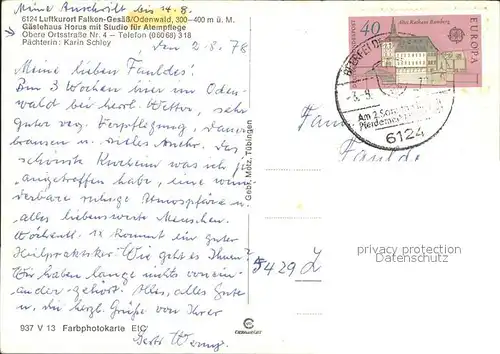 Meine Anschrift bis 14.8.
6124 Luftkurort Falken-Gesäß/Odenwald, 300–400 m ü. M.
Gästehaus Horus mit Studio für Atempflege
Obere Ortsstraße Nr. 4 – Telefon (06068) 318
Pächterin: Karin Schley
den 2.8.78
Meine lieben Fauldes!
Bin 3 Wochen hier im Oden-
wald bei herrl. Wetter, sehr
guter veg. Verpflegung,
brausen u. vieles Andre. Das
schönste Kurheim was ich je
angetroffen habe, eine wun-
derbare ruhige Atmosphäre u.
alles liebenswerte Menschen.
Wöchentl. 1x kommt ein guter
Heilpraktiker. Wie geht es Ihnen?
Wir haben lange nichts vonein-
ander gehört. Alles, alles Gute
u. die herzl. Grüße von Ihrer
937 V 13 Farbphotokarte EIC
Gebr. Metz, Tübingen
DEUTSCHE BUNDESPOST
40
Altes Rathaus Bamberg
EUROPA
BEERFELDEN
Am 2. Sonntag
Pferdemarkt
6124
Fam.
Faulde
5429
privacy protection
Datenschutz